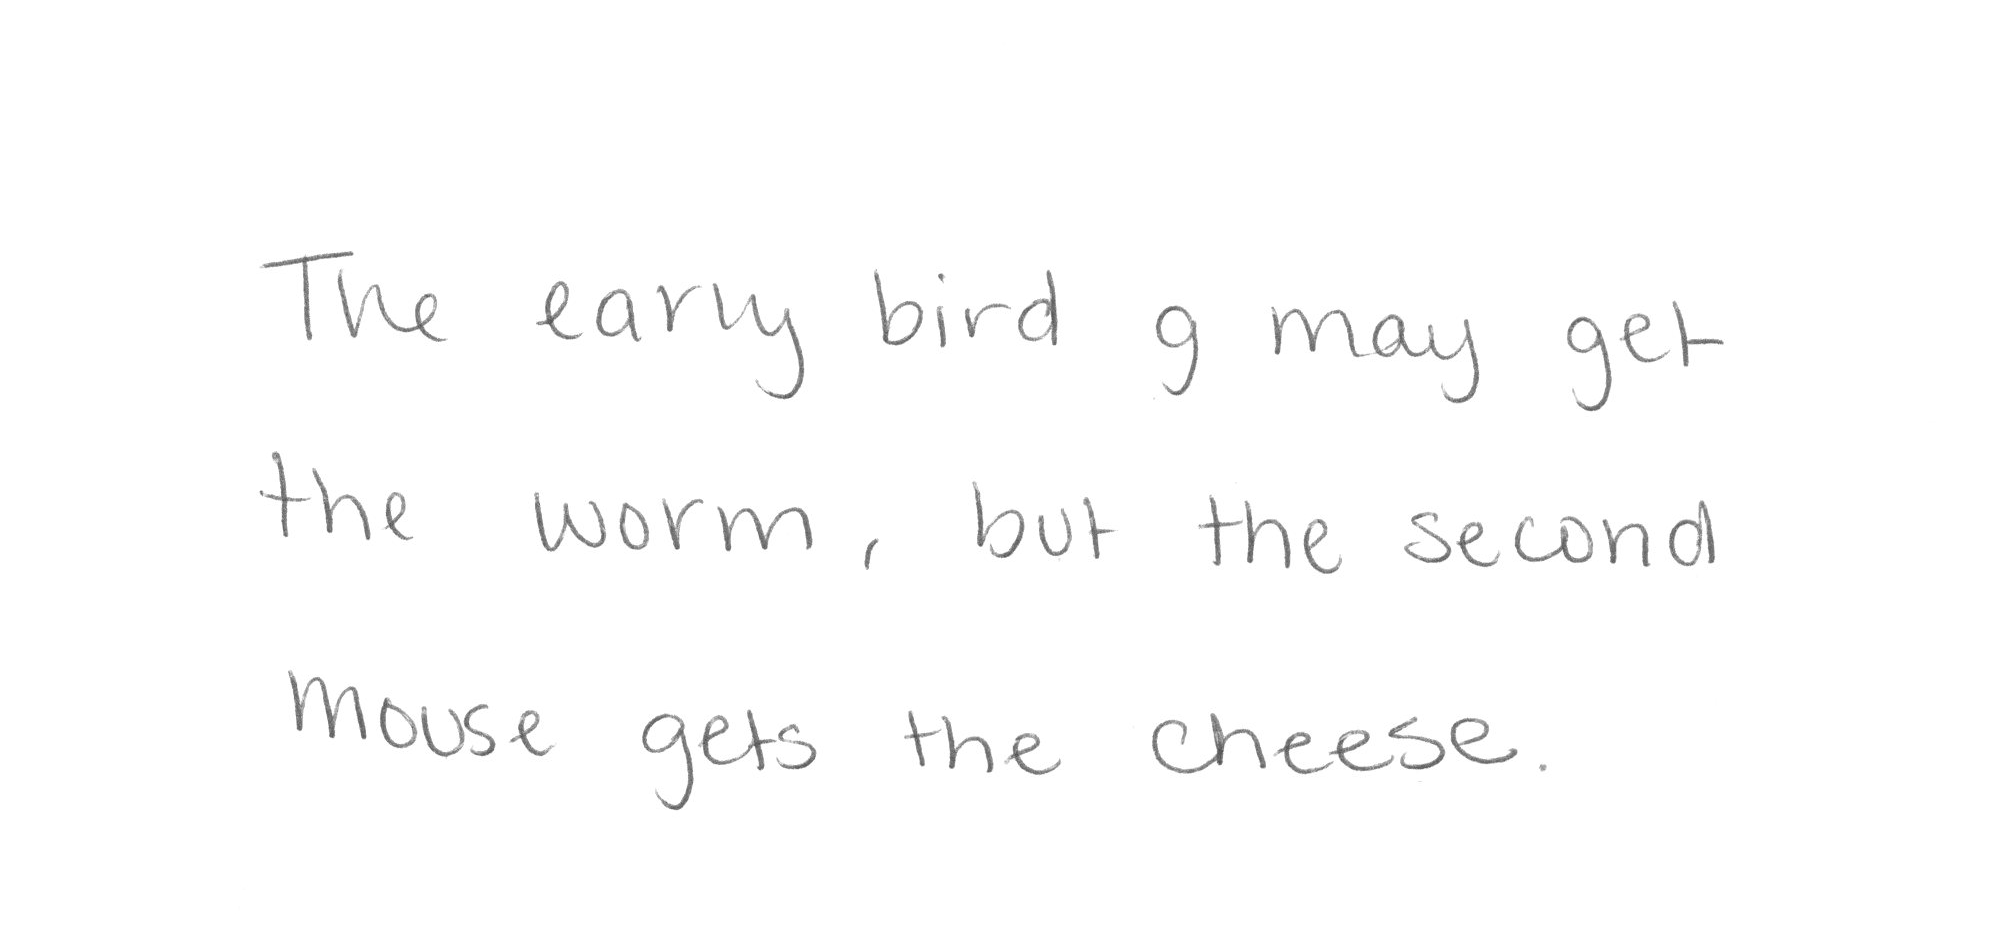 The early bird g may get
the worm, but the second
mouse gets the cheese.